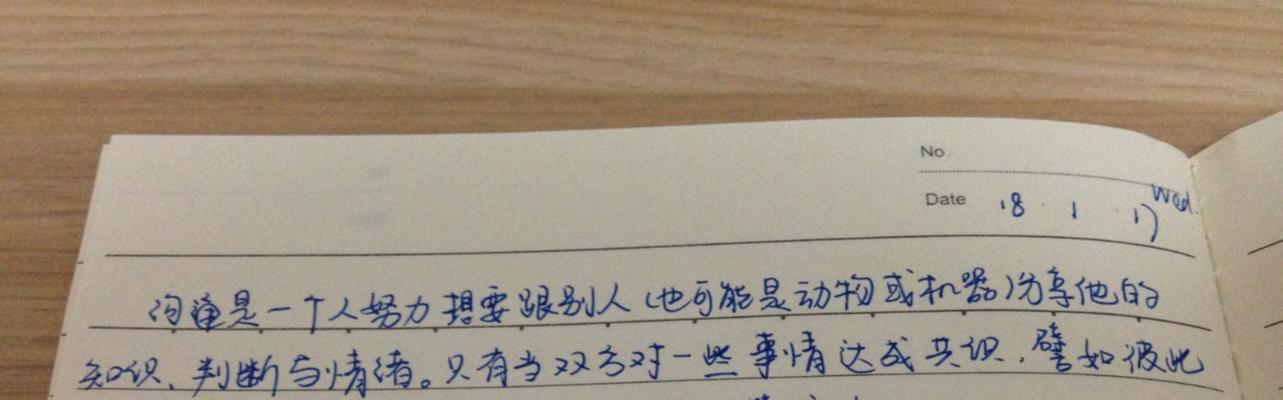 No.
Wed.
Date 18 1 17
沟通是一个人努力想要跟别人(也可能是动物或机器)分享他的
知识、判断与情绪。只有当双方对一些事情达成共识,譬如彼此